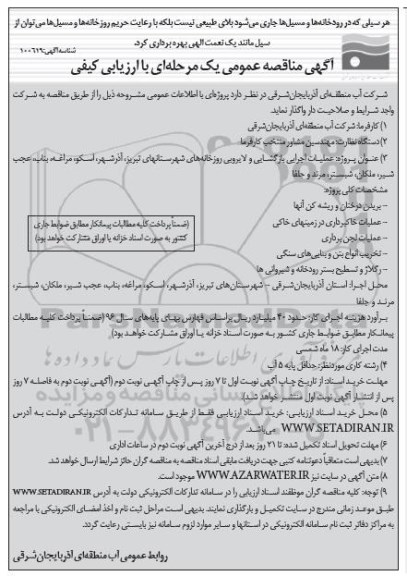 هر سیلی که در رودخانه‌ها و مسیل‌ها جاری می‌شود بلای طبیعی نیست بلکه با رعایت حریم رودخانه‌ها و مسیل‌ها می‌توان از
سیل مانند یک نعمت الهی بهره برداری کرد.
شناسه آگهی: ۱۰۰۶۱۹
آگهی مناقصه عمومی یک مرحله‌ای با ارزیابی کیفی
شرکت آب منطقه‌ای آذربایجان‌شرقی در نظر دارد پروژه‌ای با اطلاعات عمومی مشروحه ذیل را از طریق مناقصه به شرکت
واجد شرایط و صلاحیت دار واگذار نماید.
۱) کارفرما: شرکت آب منطقه‌ای آذربایجان‌شرقی
۲) دستگاه نظارت: مهندسین مشاور منتخب کارفرما
۳) عنوان پروژه: عملیات اجرایی بازگشایی و لایروبی رودخانه‌های شهرستانهای تبریز، آذرشهر، اسکو، مراغه، بناب، عجب
شیر، ملکان، شبستر، مرند و جلفا
مشخصات کلی پروژه:
- بریدن درختان و ریشه کن آنها
- عملیات خاکبرداری در زمینهای خاکی
- عملیات لجن برداری
- تخریب انواع بتن و بنایی‌های سنگی
- رگلاژ و تسطیح بستر رودخانه و شیروانی ها
(ضمناً پرداخت کلیه مطالبات پیمانکار مطابق ضوابط جاری
کشور به صورت اسناد خزانه یا اوراق مشارکت خواهد بود)
محل اجرا: استان آذربایجان‌شرقی - شهرستان‌های تبریز، آذرشهر، اسکو، مراغه، بناب، عجب شیر، ملکان، شبستر،
مرند و جلفا
برآورد هزینه اجرای کار: حدود ۴۰ میلیارد ریال براساس فهارس بهای پایه‌های سال ۹۶ (ضمناً پرداخت کلیه مطالبات
پیمانکار مطابق ضوابط جاری کشور به صورت اسناد خزانه یا اوراق مشارکت خواهد بود)
مدت اجرای کار: ۱۸ ماه شمسی
۴) رشته کاری موردنظر: حداقل پایه ۵ آب
مهلت خرید اسناد: از تاریخ چاپ آگهی نوبت اول تا ۷ روز پس از چاپ آگهی نوبت دوم (آگهی نوبت دوم به فاصله ۷ روز
پس از انتشار آگهی نوبت اول منتشر خواهد شد).
۵) محل خرید اسناد ارزیابی: خرید اسناد ارزیابی فقط از طریق سامانه تدارکات الکترونیکی دولت به آدرس
WWW.SETADIRAN.IR می‌باشد.
۶) مهلت تحویل اسناد تکمیل شده: تا ۲۱ روز بعد از درج آخرین آگهی نوبت دوم در ساعات اداری
۷) بدیهی است متعاقباً دعوتنامه کتبی جهت دریافت مابقی اسناد مناقصه به مناقصه گران حائز شرایط ارسال خواهد شد.
۸) متن آگهی در سایت نیز WWW.AZARWATER.IR موجود است.
۹) توجه: کلیه مناقصه گران موظفند اسناد ارزیابی را در سامانه تدارکات الکترونیکی دولت به آدرس WWW.SETADIRAN.IR
طبق موعد زمانی مندرج در سایت تکمیل و بارگذاری نمایند. بدیهی است مراحل ثبت نام و اخذ امضای الکترونیکی با مراجعه
به مراکز دفاتر ثبت نام سامانه الکترونیکی در استانها و سایر موارد لزوم سامانه نیز بایستی رعایت گردد.
روابط عمومی آب منطقه‌ای آذربایجان‌شرقی